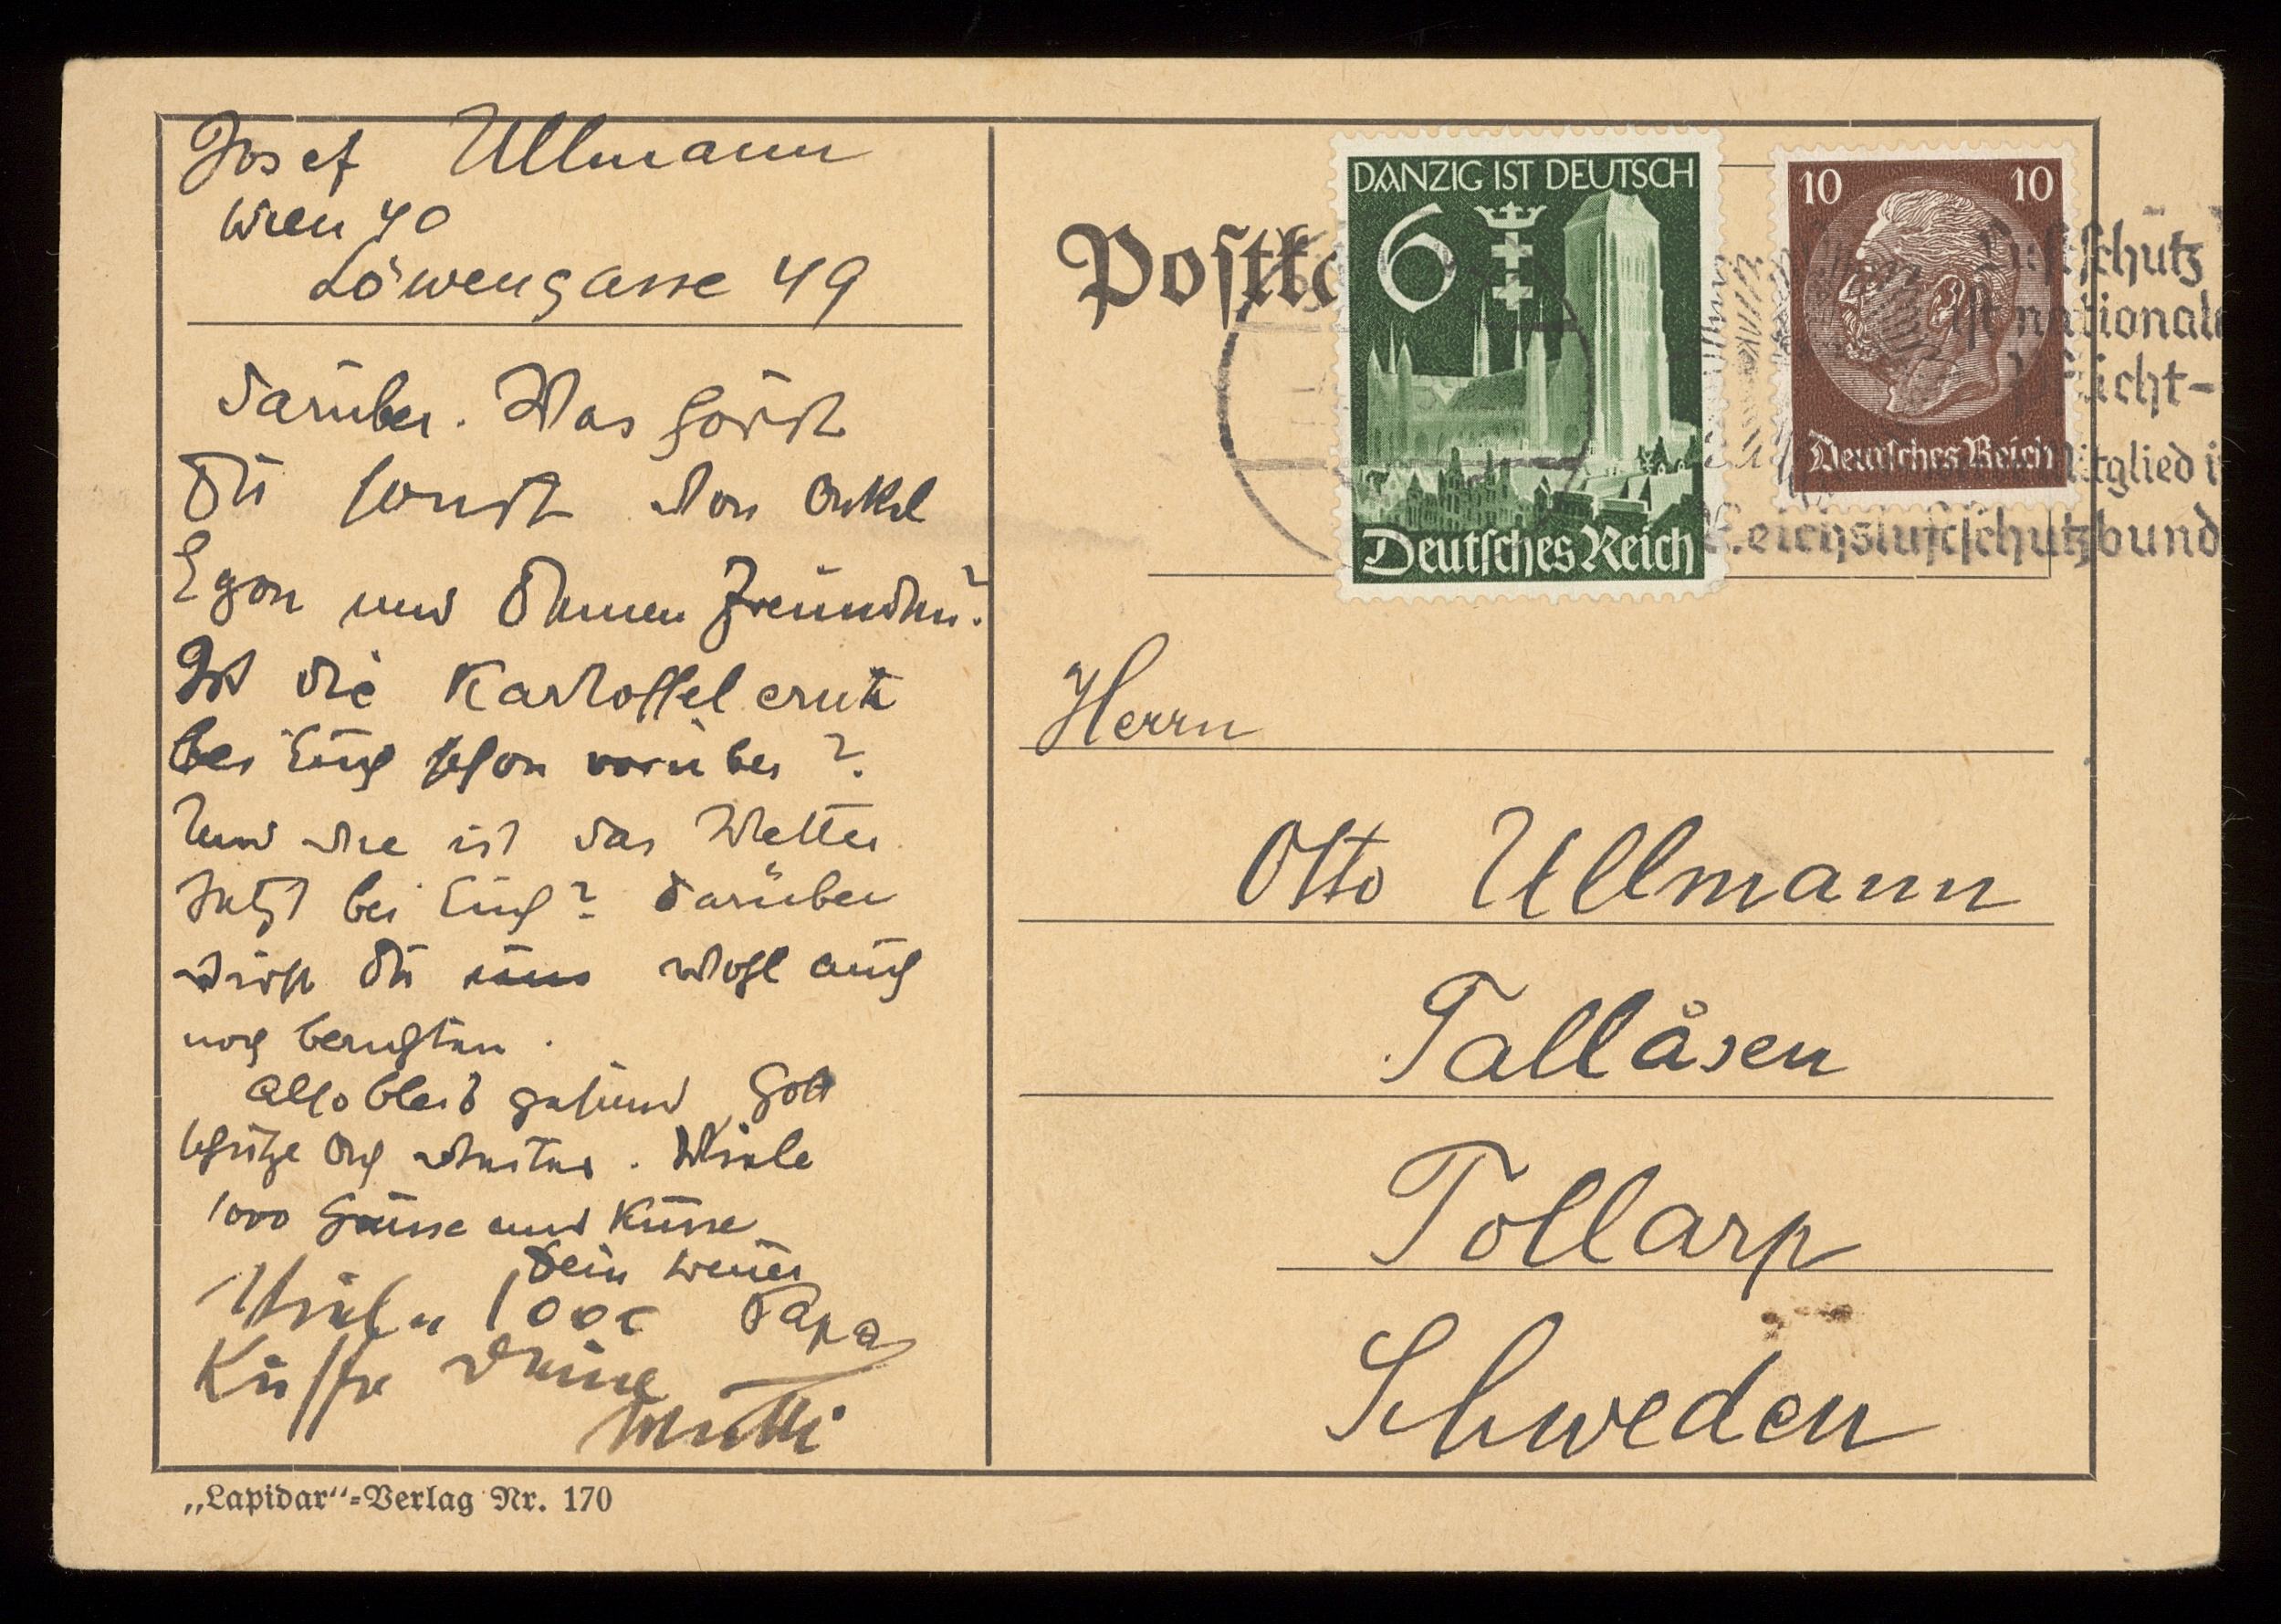 Josef Ullmann
Wien 40
Löwengasse 49
darüber. Was hörst
Du sonst von Onkel
Egon und Deinen Freunden?
Ist die Kartoffelernte
bei Euch schon vorüber?
Und wie ist das Wetter
jetzt bei Euch? Darüber
wirst Du uns wohl auch
noch berichten.
Also bleib gesund, Gott
schütze Dich weiter. Viele
1000 Grüsse und Küsse
Dein treuer
Papa
Viele 1000
Küsse Deine
Mutti
„Lapidar“-Verlag Nr. 170
Postka
DANZIG IST DEUTSCH
6
Deutsches Reich
10 10
Deutsches Reich
Luftschutz
ist nationale
Pflicht-
Mitglied i
Reichsluftschutzbund
Herrn
Otto Ullmann
Tallåsen
Tollarp
Schweden